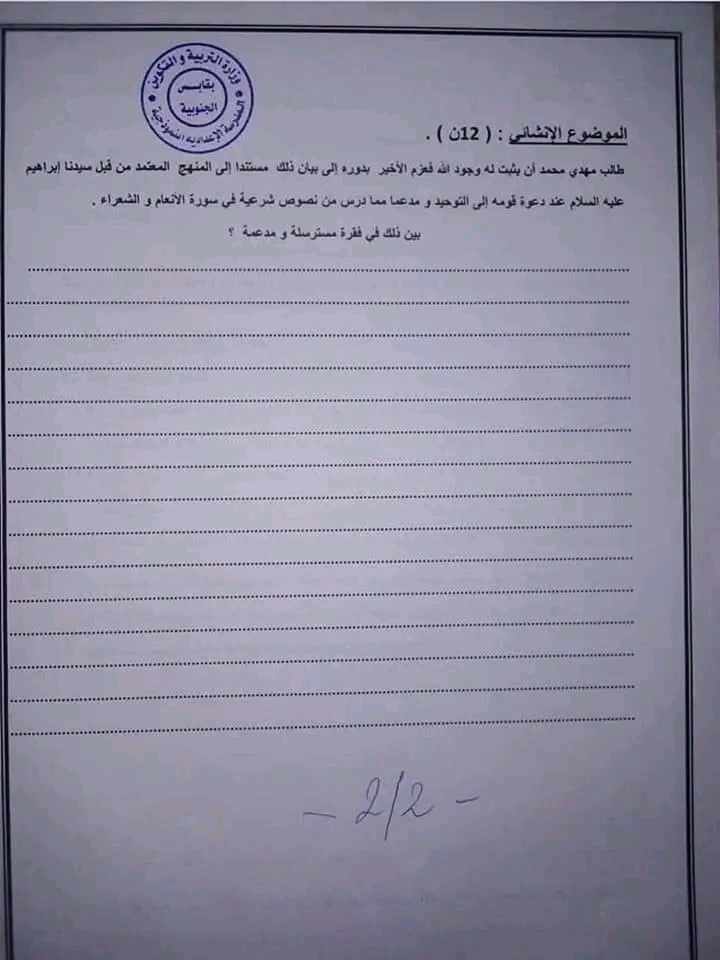 وزارة التربية و التكوين
بقابس
الجنوبية
المدرسة الإعدادية النموذجية
الموضوع الإنشائي : ( 12ن ) .
طالب مهدي محمد أن يثبت له وجود الله فعزم الأخير بدوره إلى بيان ذلك مستندا إلى المنهج المعتمد من قبل سيدنا إبراهيم
عليه السلام عند دعوة قومه إلى التوحيد و مدعما مما درس من نصوص شرعية في سورة الأنعام و الشعراء .
بين ذلك في فقرة مسترسلة و مدعمة ؟
- 2/2 -